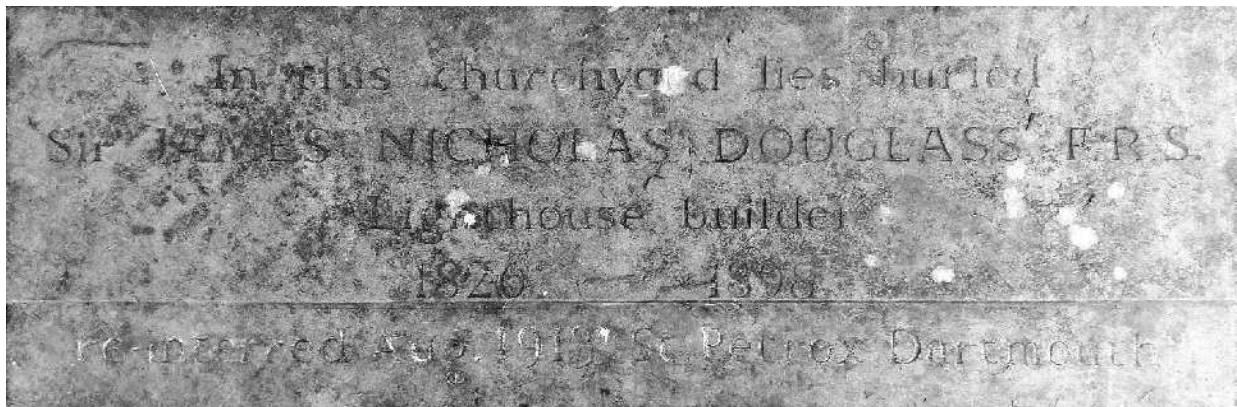 In this churchyard lies buried
Sir JAMES NICHOLAS DOUGLASS F.R.S.
Lighthouse builder
1826 — 1898
re-interred Aug. 1913 St. Petrox Dartmouth